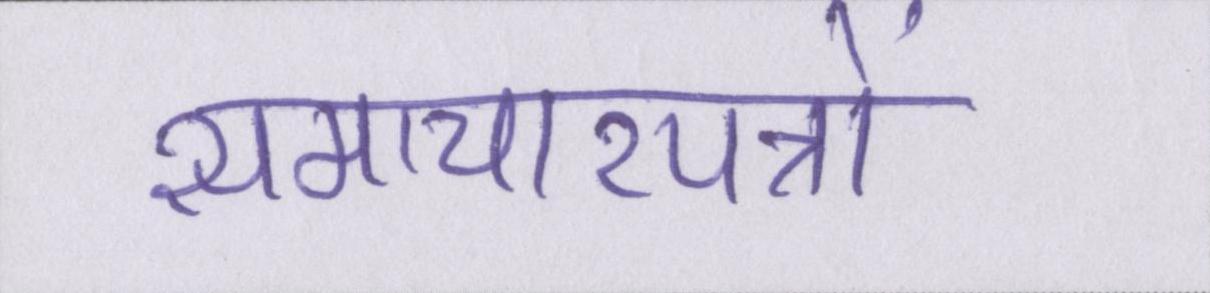 समाचारपत्रों